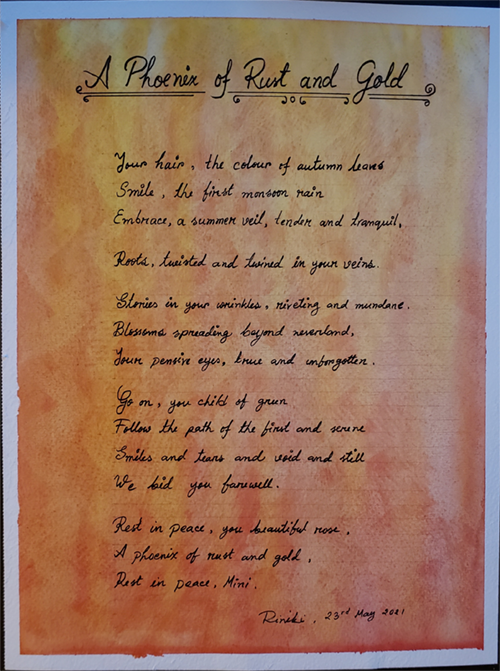 A Phoenix of Rust and Gold
Your hair, the colour of autumn leaves
Smile, the first monsoon rain
Embrace, a summer veil, tender and tranquil,
Roots, twisted and twined in your veins.
Stories in your wrinkles, riveting and mundane.
Blossoms spreading beyond neverland,
Your pensive eyes, true and unforgotten.
Go on, you child of green
Follow the path of the first and serene
Smiles and tears and void and still
We bid you farewell.
Rest in peace, you beautiful rose,
A phoenix of rust and gold,
Rest in peace, Mini.
Riniki, 23rd May 2021